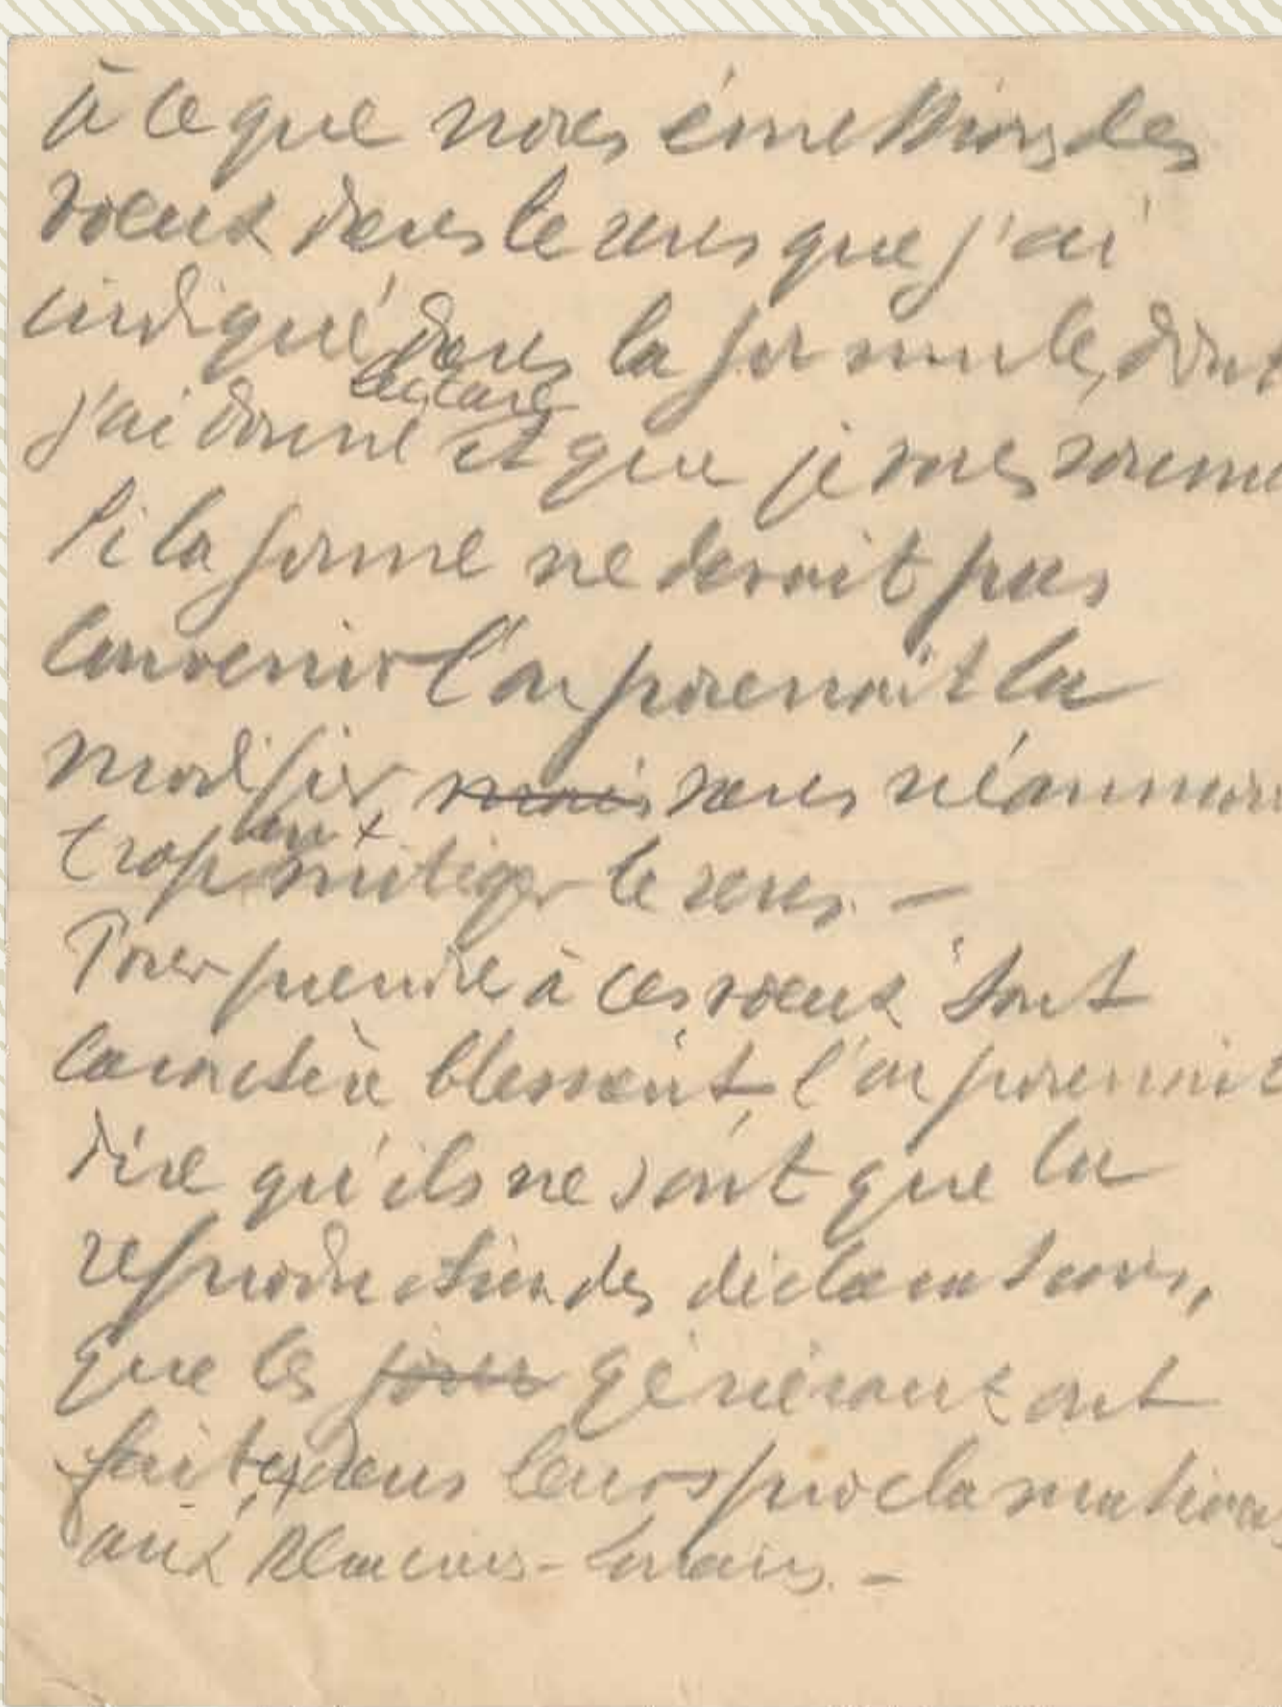 à ce que nous émettions des
vœux dans le sens que j'ai
indiqué dans la formule, dont
lecture
j'ai donné et que je vous soumet
Si la forme ne devait pas
convenir l'on pourrait la
modifier mais sans néanmoins
en
trop mitiger le sens. —
Pour prendre à ces vœux tout
caractère blessant, l'on pourrait
dire qu'ils ne sont que la
reproduction des déclarations,
que les généraux ont
faites dans leurs proclamations
aux Alsaciens-Lorrains. —